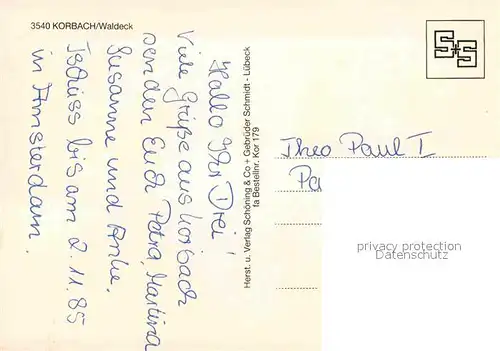 3540 KORBACH/Waldeck
Hallo Ihr Drei!
Viele Grüße aus Korbach
senden Euch Petra, Martina
Susanne und Anke.
Tschüss bis am 2.11.85
in Amsterdam.
Herst. u. Verlag Schöning & Co + Gebrüder Schmidt - Lübeck
fa Bestellnr. Kor 179
S+S
Theo Paul I
Pa
privacy protection
www.ansichtskarten-center.de